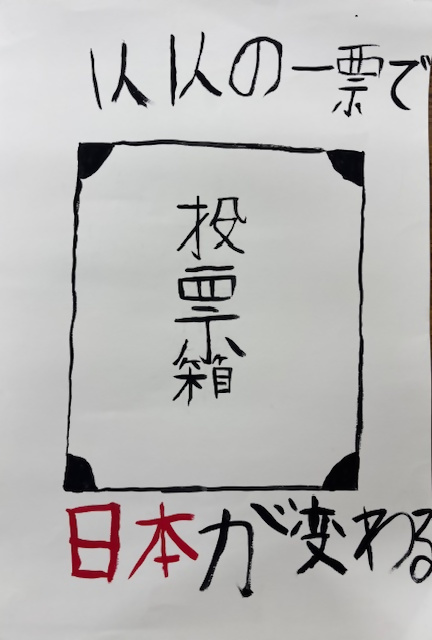 1人1人の一票で
投票箱
日本が変わる